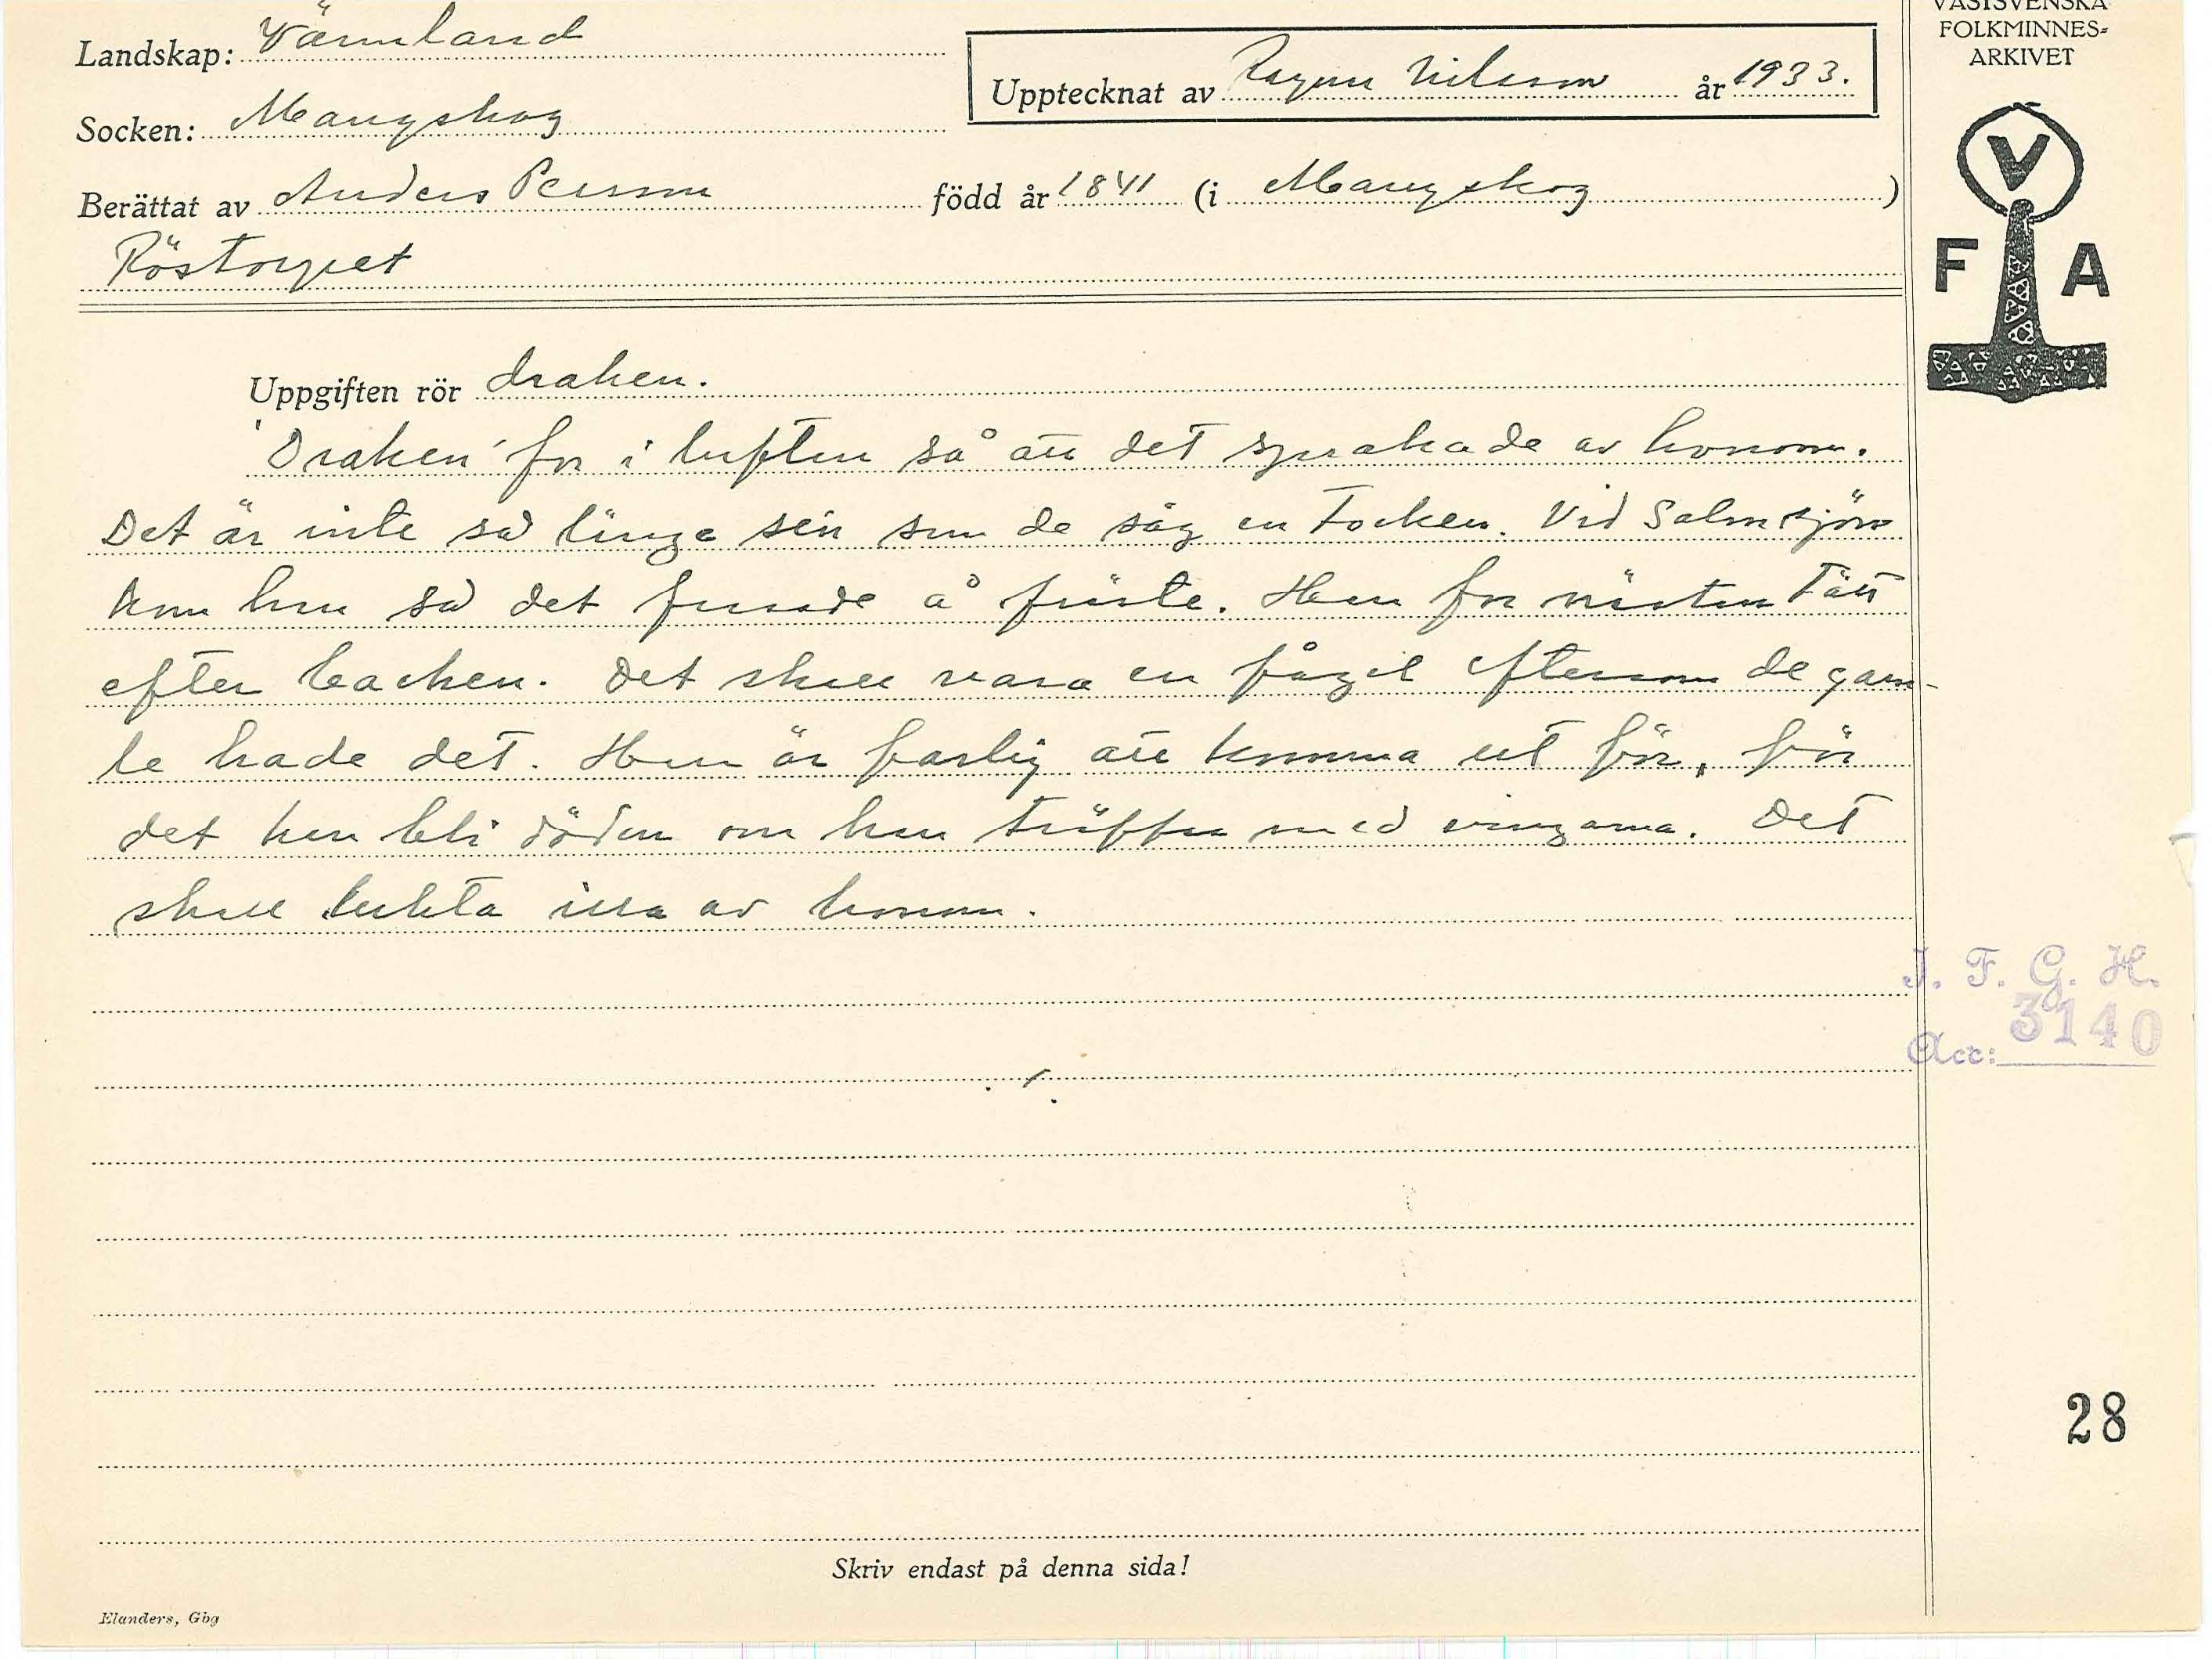 Landskap: Värmland
Socken: Mangskog
Upptecknat av Ragnar Nilsson år 1933.
Berättat av Anders Persson född år 1841 (i Mangskog)
Röstorpet
VÄSTSVENSKA
FOLKMINNES-
ARKIVET
V
F A
Uppgiften rör draken.
'Draken' for i luften så att det sprakade av honom.
Det är inte så länge sen som de såg en tocken. Vid Salmsjön
kom han så det frusade å fräste. Han for nästan tätt
efter backen. Det skall vara en fågel eftersom de gam-
le hade det. Han är farlig att komma ut för, för
det kan bli döden om han träffar med vingarna. Det
skall lukta illa av honom.
I. F. G. H.
Acc: 3140
28
Skriv endast på denna sida!
Elanders, Gbg